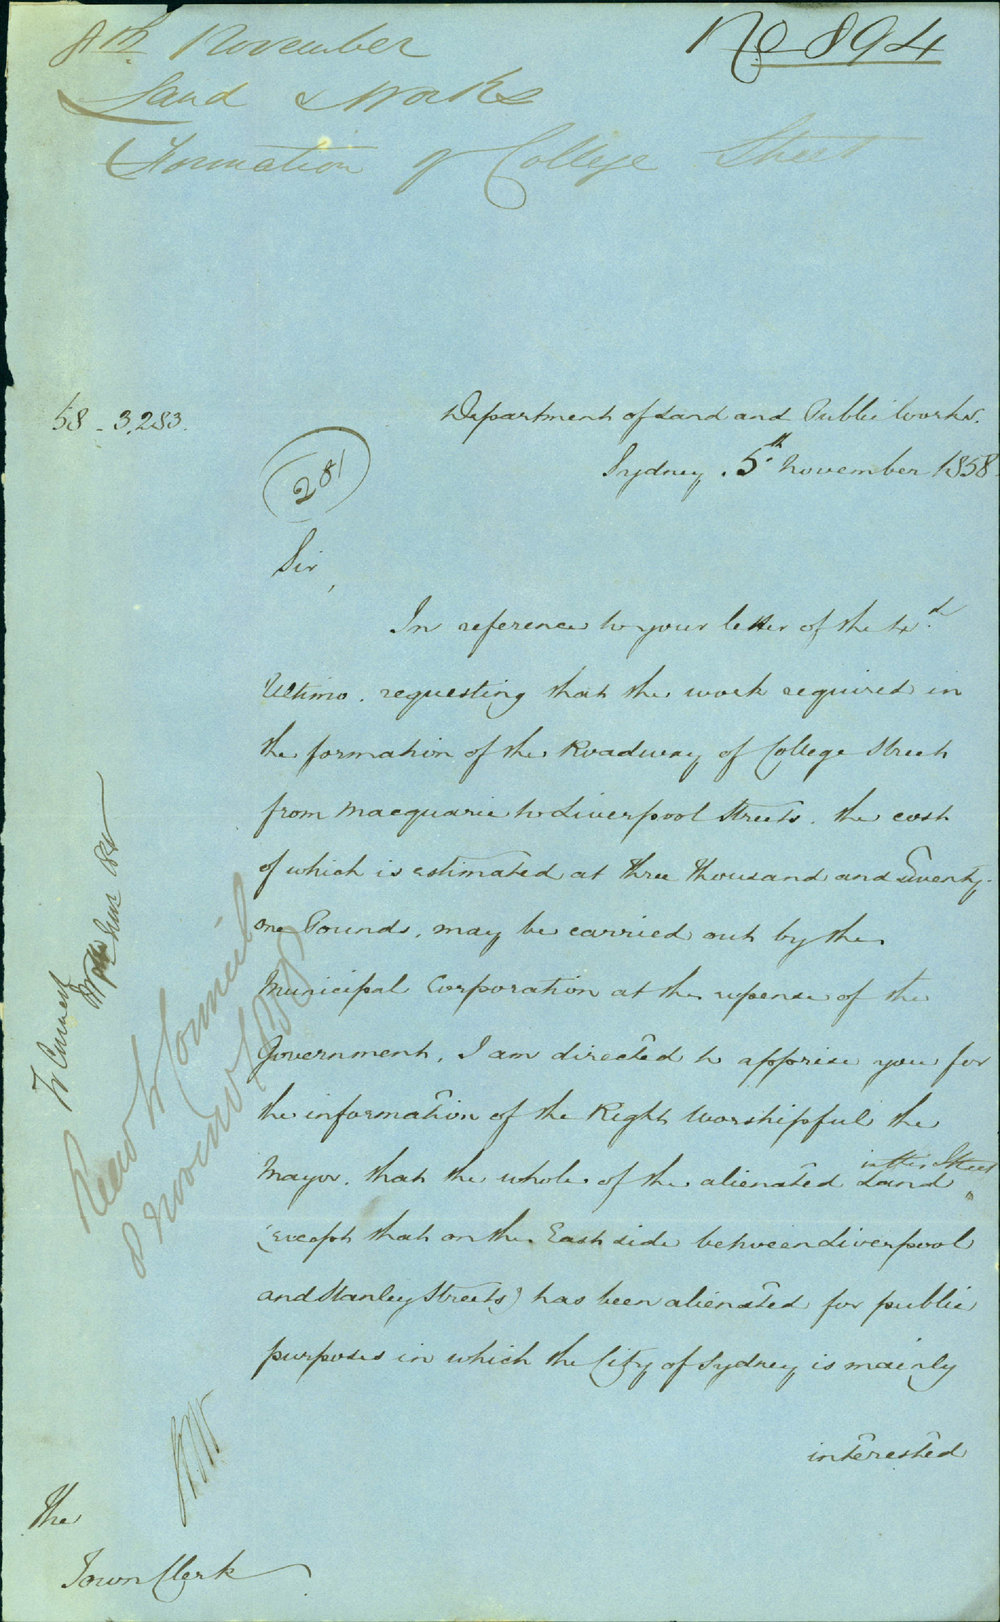 8th November
No 894
Land & Works
Formation of College Street
58-3,283.
Department of Land and Public Works.
Sydney. 5th November 1858
(281)
Sir,
In reference to your letter of the 4th
Ultimo. requesting that the work required in
the formation of the Roadway of College Street
from Macquarie to Liverpool Streets. the cost
of which is estimated at three thousand and Twenty-
one Pounds, may be carried out by the
Municipal Corporation at the expense of the
Government, I am directed to apprise you for
the information of the Right Worshipful the
Mayor. that the whole of the alienated Land
in this Street
(except that on the East side between Liverpool
and Stanley Streets) has been alienated for public
purposes in which the City of Sydney is mainly
interested
To Council
Read to Council
8 November 1858
The
Town Clerk